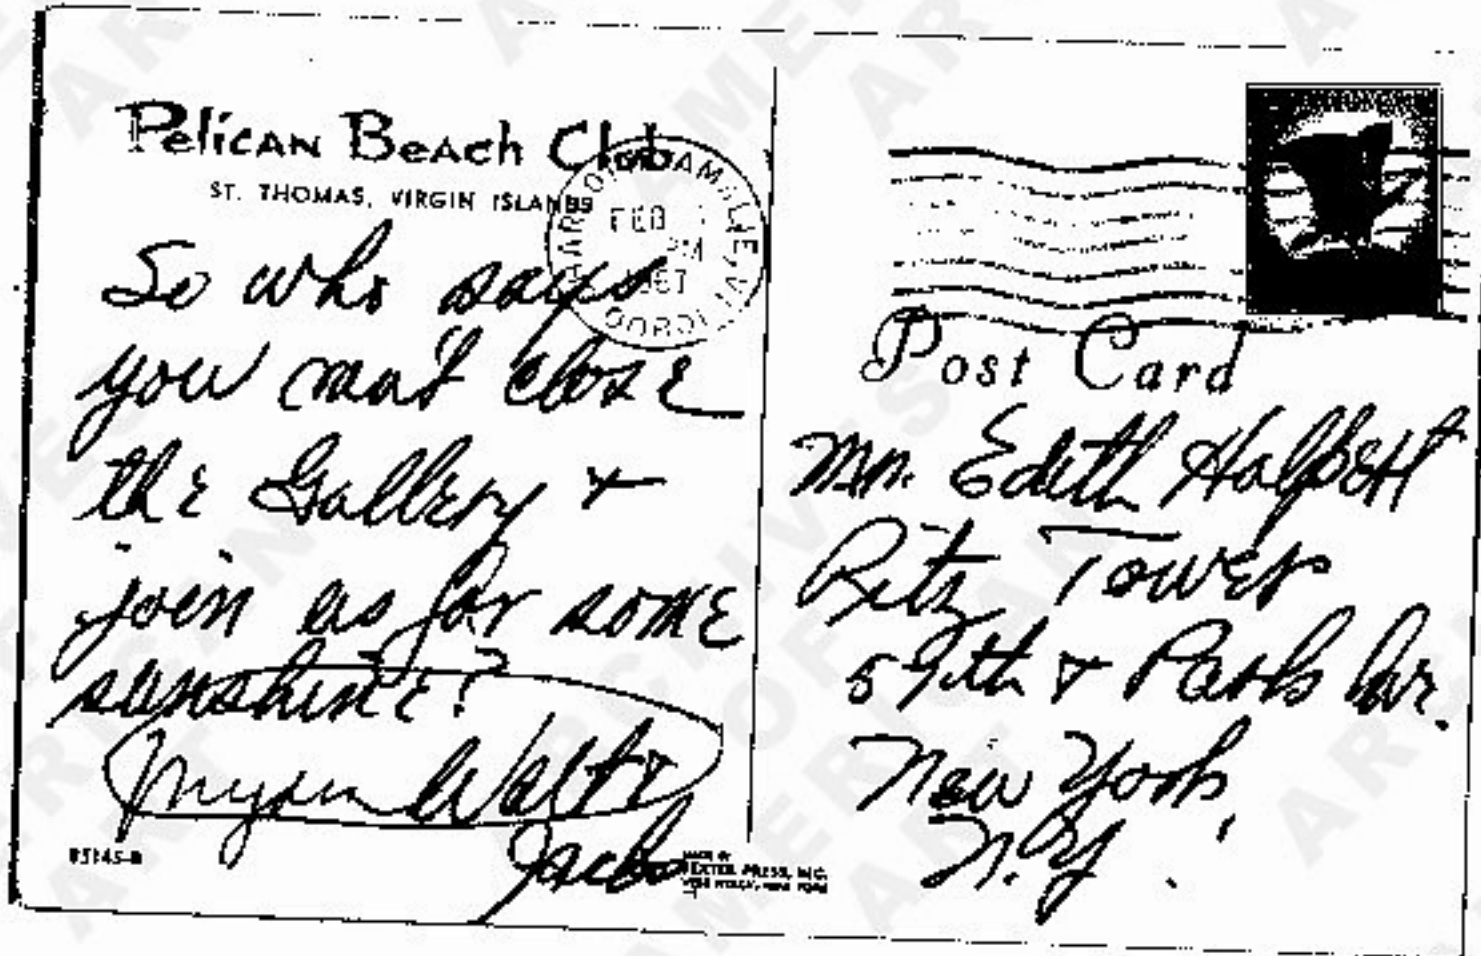 Pelican Beach Club
ST. THOMAS, VIRGIN ISLANDS
So who says
you can't close
the Gallery +
join us for some
sunshine?
Waltz
Jacks
85145-B
MADE BY
DEXTER PRESS, INC.
WEST NYACK, NEW YORK
FEB
PM
1967
Post Card
Mrs. Edith Halpert
Ritz Tower
59th + Park Av.
New York,
N.Y.